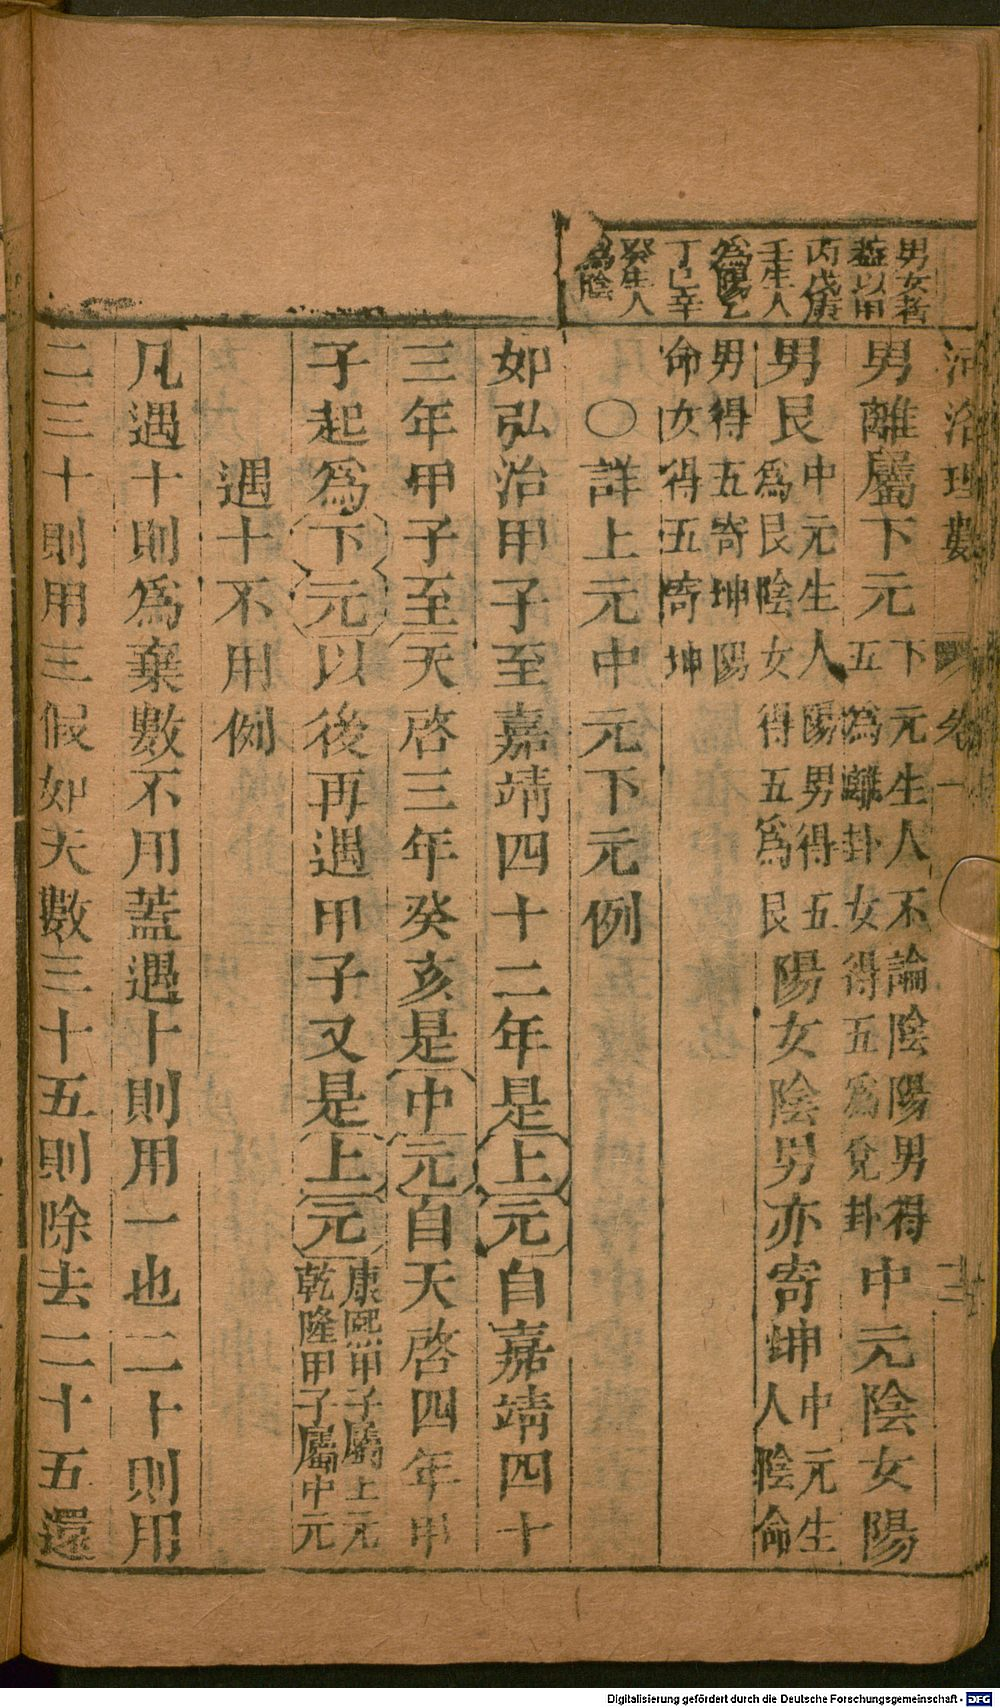 河洛理數 卷一
男女者
葢以甲
丙戊庚
壬生人
為陽乙
丁巳辛
癸生人
為陰
男離屬下元下元生人不論陰陽男得五為離卦女得五為兌卦中元陰女陽
男艮中元生人陽男得五為艮陰女得五為艮陽女陰男亦寄坤中元生人陰命
男得五寄坤陽
命女得五寄坤
〇詳上元中元下元例
如弘治甲子至嘉靖四十二年是上元自嘉靖四十
三年甲子至天啓三年癸亥是中元自天啓四年甲
子起爲下元以後再遇甲子又是上元康熙甲子屬上元乾隆甲子屬中元
遇十不用例
凡遇十則爲棄數不用蓋遇十則用一也二十則用
二三十則用三假如天數三十五則除去二十五還
Digitalisierung gefördert durch die Deutsche Forschungsgemeinschaft - DFG